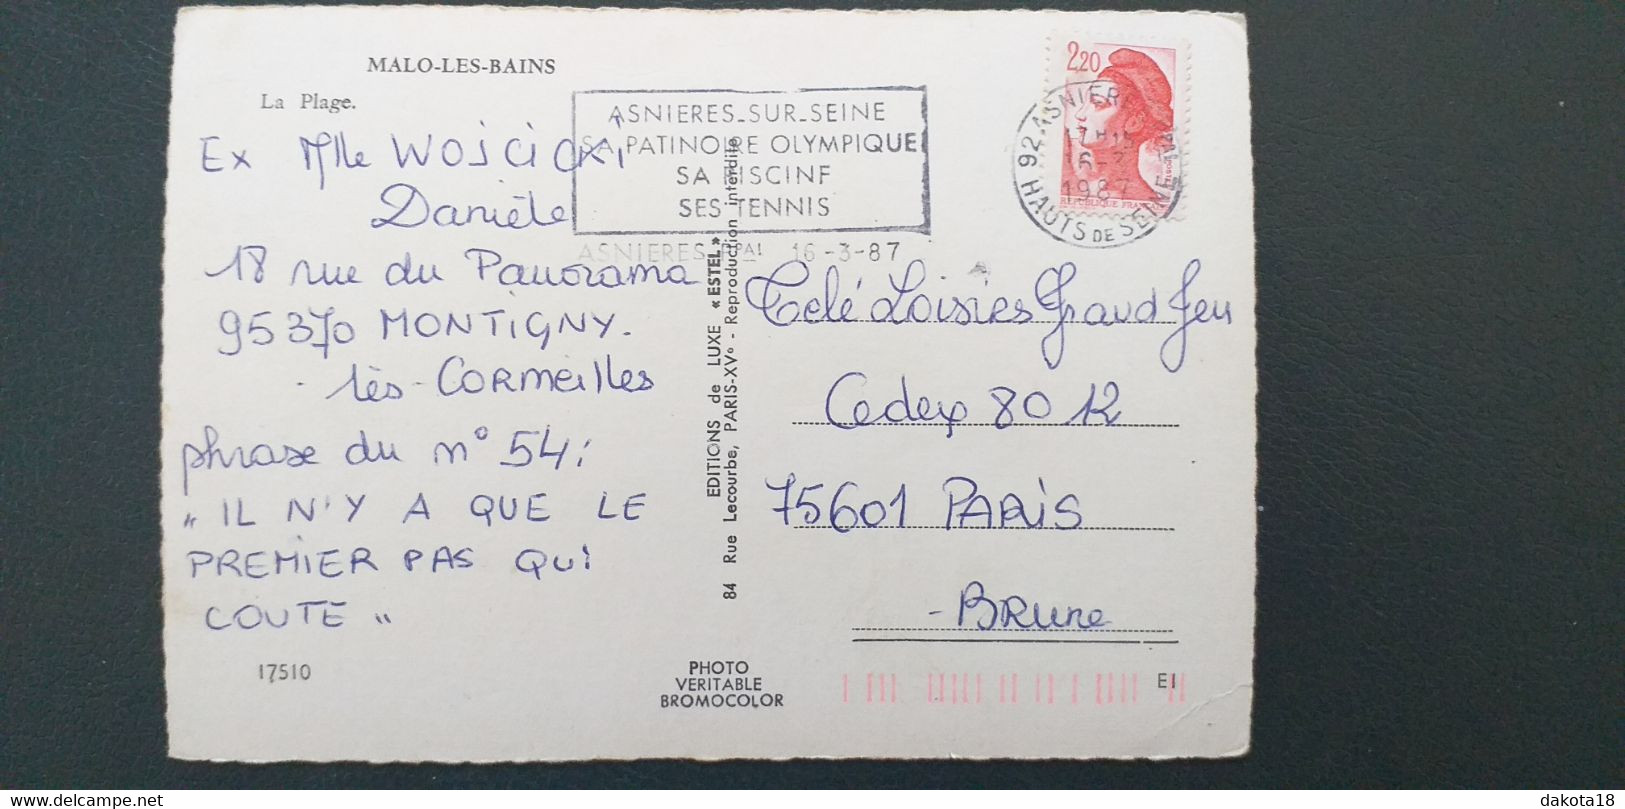 MALO-LES-BAINS
La Plage.
Ex Mlle WOJCICKI
Danièle
18 rue du Panorama
95370 MONTIGNY.
- lès - CORMEILLES
phrase du n° 54 :
" IL N'Y A QUE LE
PREMIER PAS QUI
COUTE "
17510
ASNIERES-SUR-SEINE
SA PATINOIRE OLYMPIQUE
SA PISCINE
SES TENNIS
ASNIERES PPAL 16-3-87
EDITIONS de LUXE « ESTEL »
84 Rue Lecourbe, PARIS-XVº - Reproduction interdite
PHOTO
VERITABLE
BROMOCOLOR
2,20
REPUBLIQUE FRA
92 ASNIERES PPAL
16-3
1987
HAUTS DE SEINE
Télé Loisirs Grand Jeu
Cedex 80 12
75601 PARIS
- BRUNE
EI
http://www.delcampe.net
dakota18